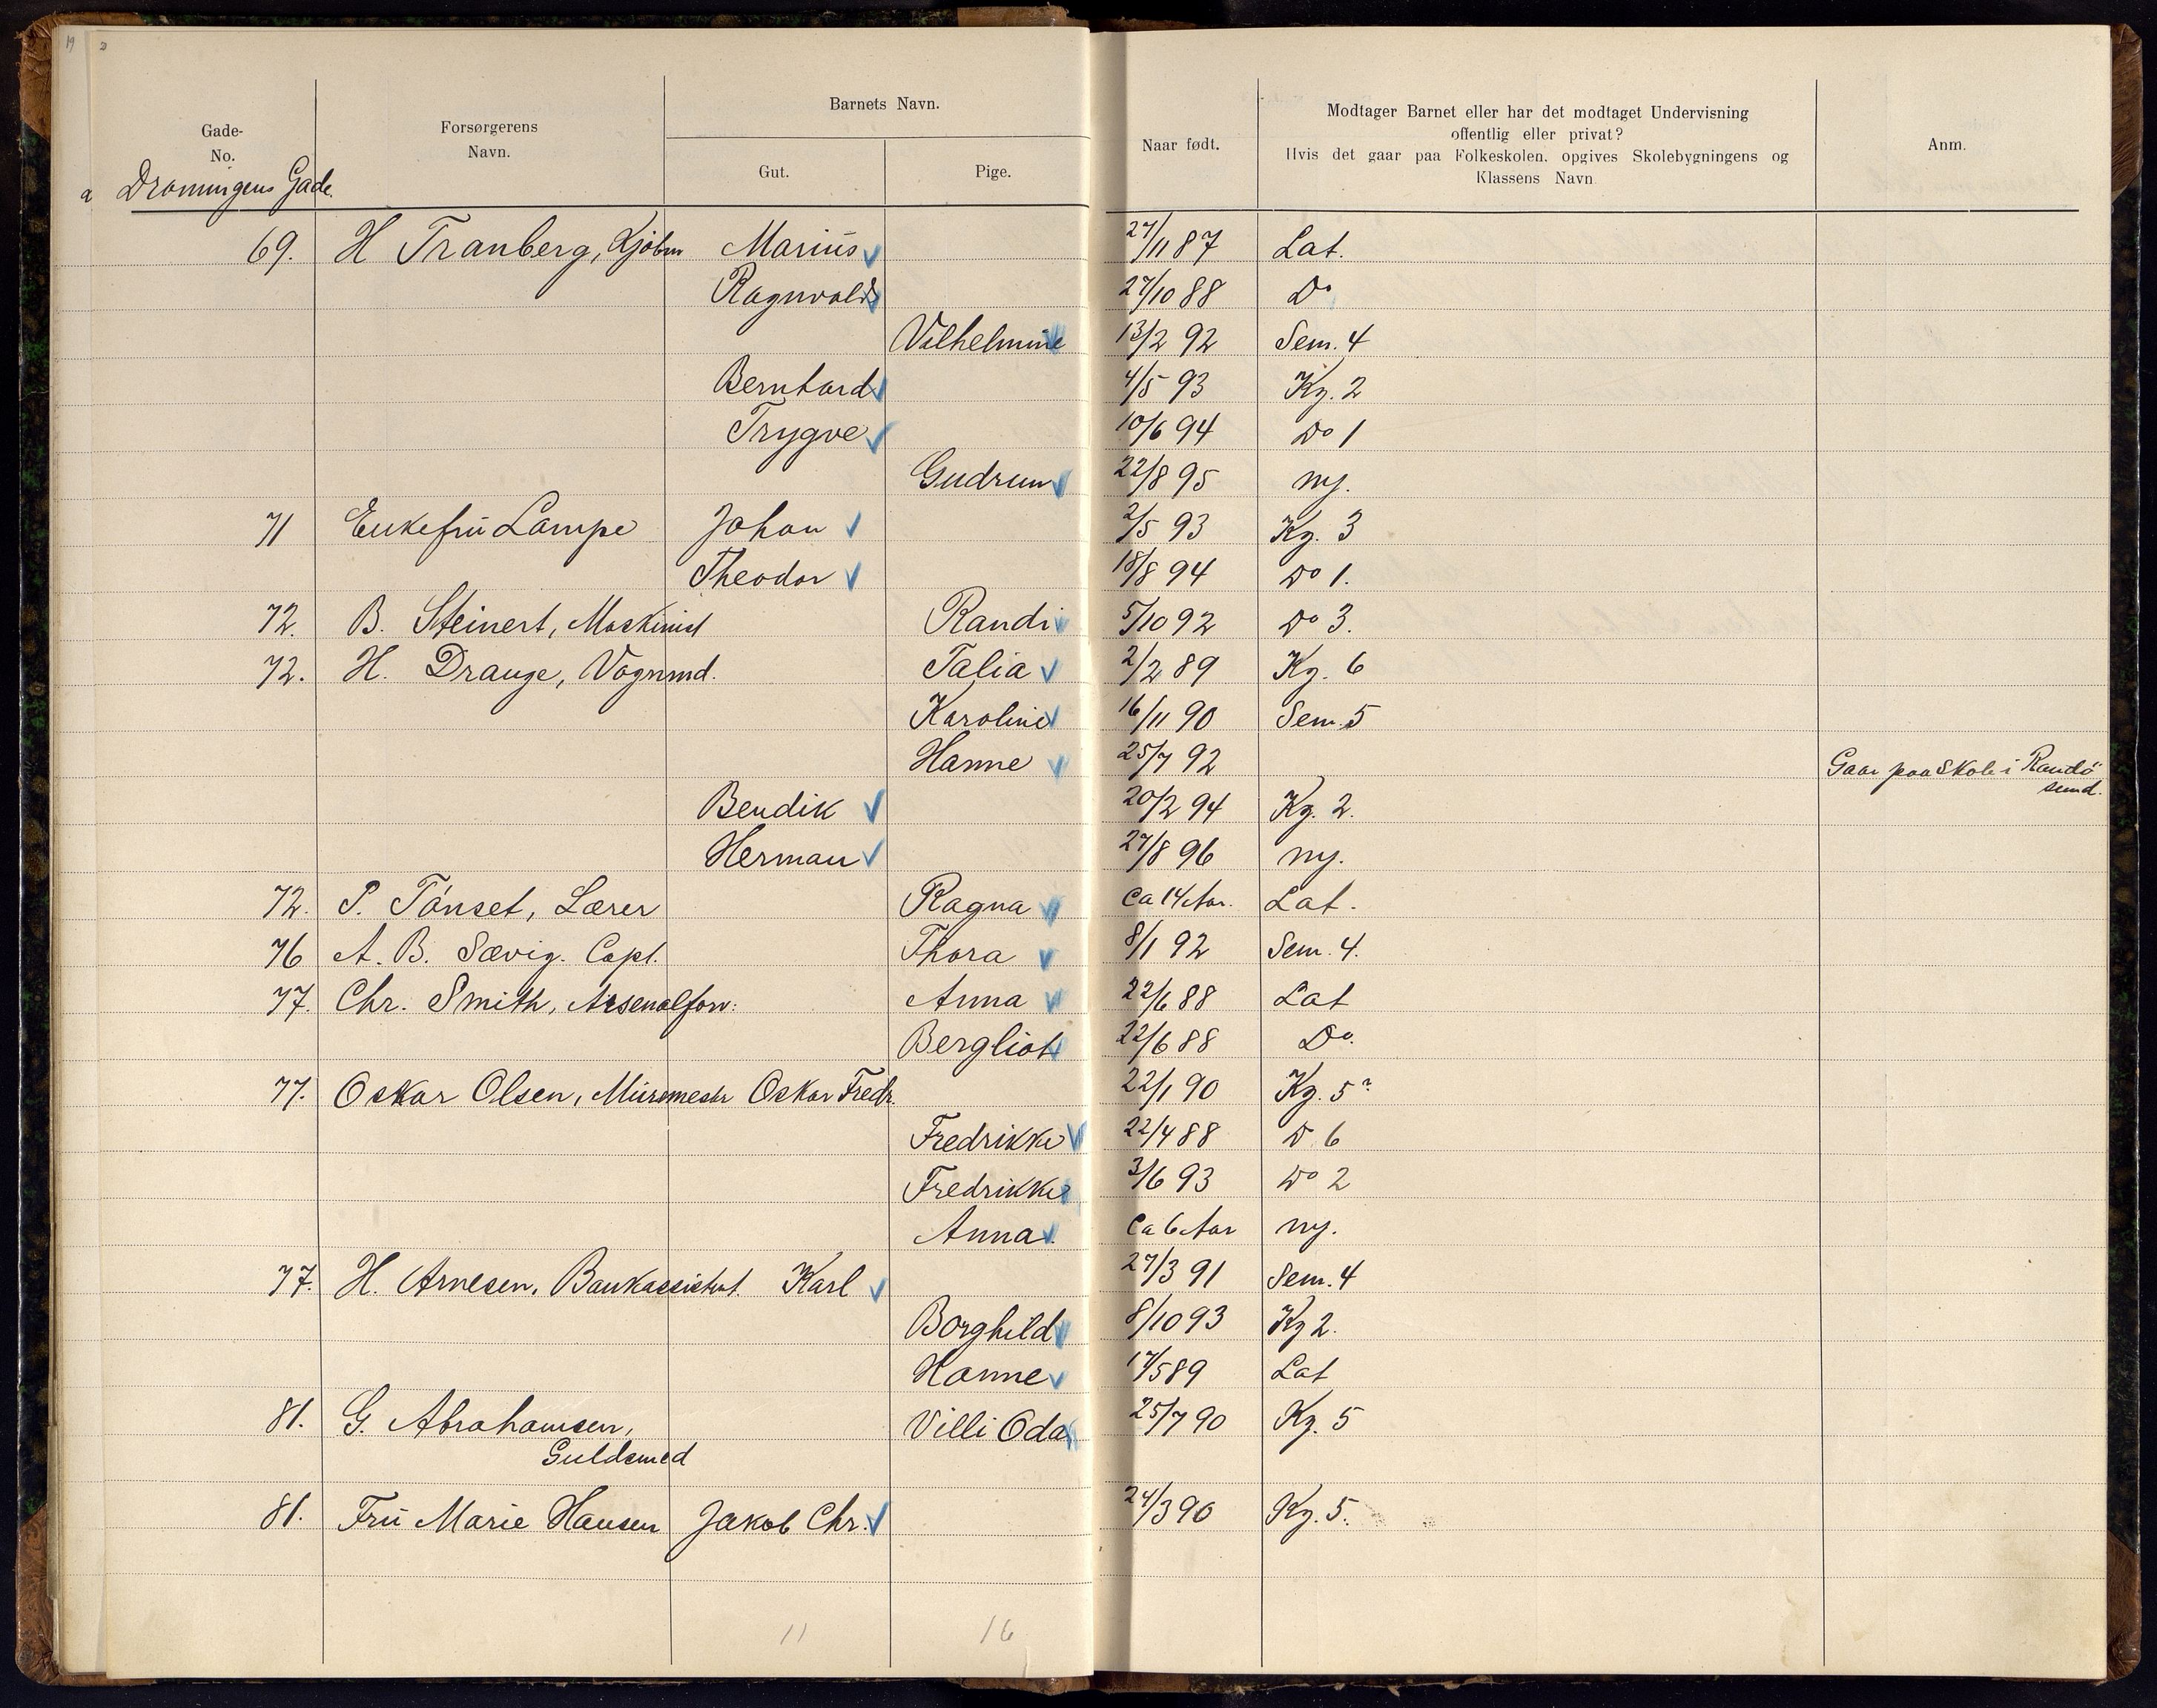 19 2
Gade-
No.
Forsørgerens
Navn.
Barnets Navn.
Gut.
Pige.
Naar født.
Modtager Barnet eller har det modtaget Undervisning
offentlig eller privat?
Hvis det gaar paa Folkeskolen. opgives Skolebygningens og
Klassens Navn
Anm.
a Dronningens Gade.
69. H Tranberg, Kjøbm Marius 27/11 87 Lat.
Ragnvald 27/10 88 Do
Vilhelmine 13/2 92 Sem. 4
Bernhard 4/5 93 Kg. 2
Trygve 10/6 94 Do 1
Gudrun 22/8 95 ny.
71 Enkefru Lampe Johan 2/5 93 Kg. 3
Theodor 18/8 94 Do 1.
72. B. Steinert, Maskinist Randi 5/10 92 Do 3.
72. H. Drange, Vognmd. Talia 2/2 89 Kg. 6
Karoline 16/11 90 Sem. 5
Hanne 25/7 92 Gaar paa Skole i Randö
sund.
Bendik 20/2 94 Kg. 2.
Herman 27/8 96 ny.
72. P. Tönset, Lærer Ragna Ca 14 Aar. Lat.
76 A. B. Sævig. Capt. Thora 8/1 92 Sem. 4.
77. Chr. Smith, Arsenalforv: Anna 22/6 88 Lat
Bergliot 22/6 88 Do.
77. Oskar Olsen, Murmestr Oskar Fredr. 22/1 90 Kg. 5?
Fredrikke 22/4 88 D 6
Fredrikke 3/6 93 Do 2
Anna. Ca 6 Aar ny.
77. H. Arnesen, Bankassistent. Karl 27/3 91 Sem. 4
Borghild 8/10 93 Kg 2.
Hanne 17/5 89 Lat
81. G. Abrahamsen, Villi Oda 25/7 90 Kg. 5
Guldsmed
81. Fru Marie Hansen Jakob Chr. 24/3 90 Kg. 5.
11 16